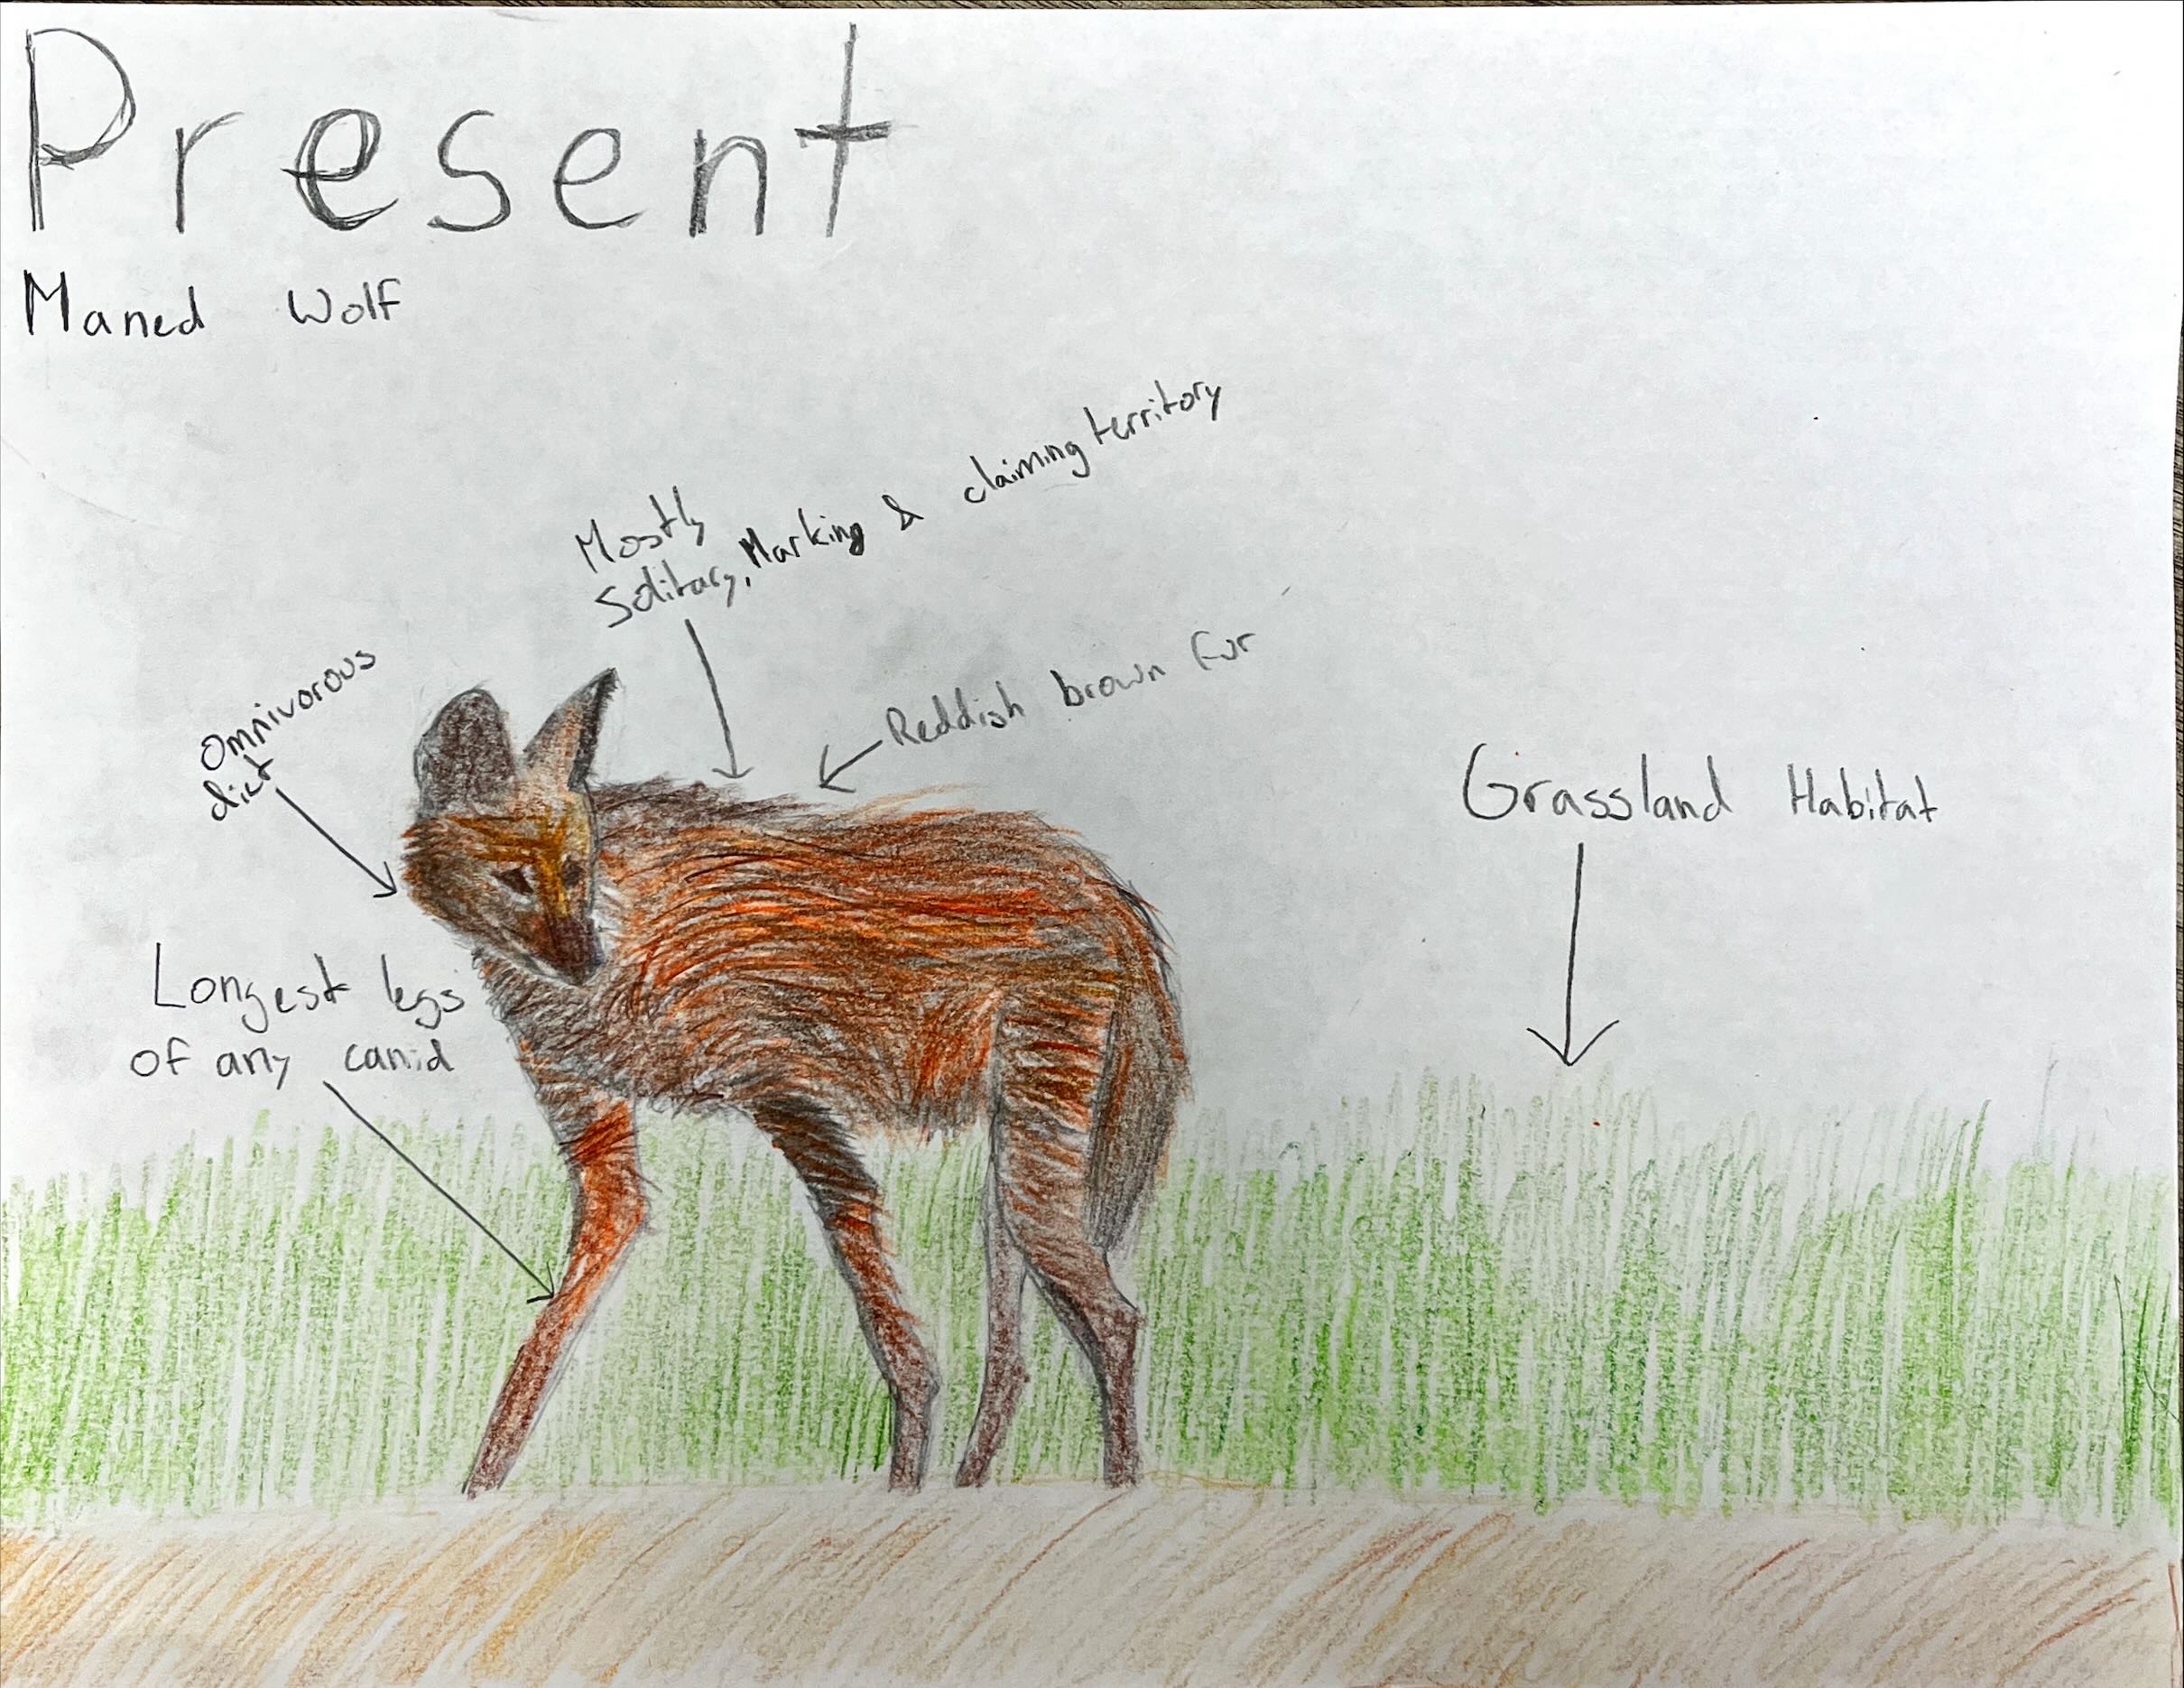 Present
Maned Wolf
Mostly
Solitary, Marking & claiming territory
Omnivorous
diet
Reddish brown fur
Grassland Habitat
Longest legs
of any canid